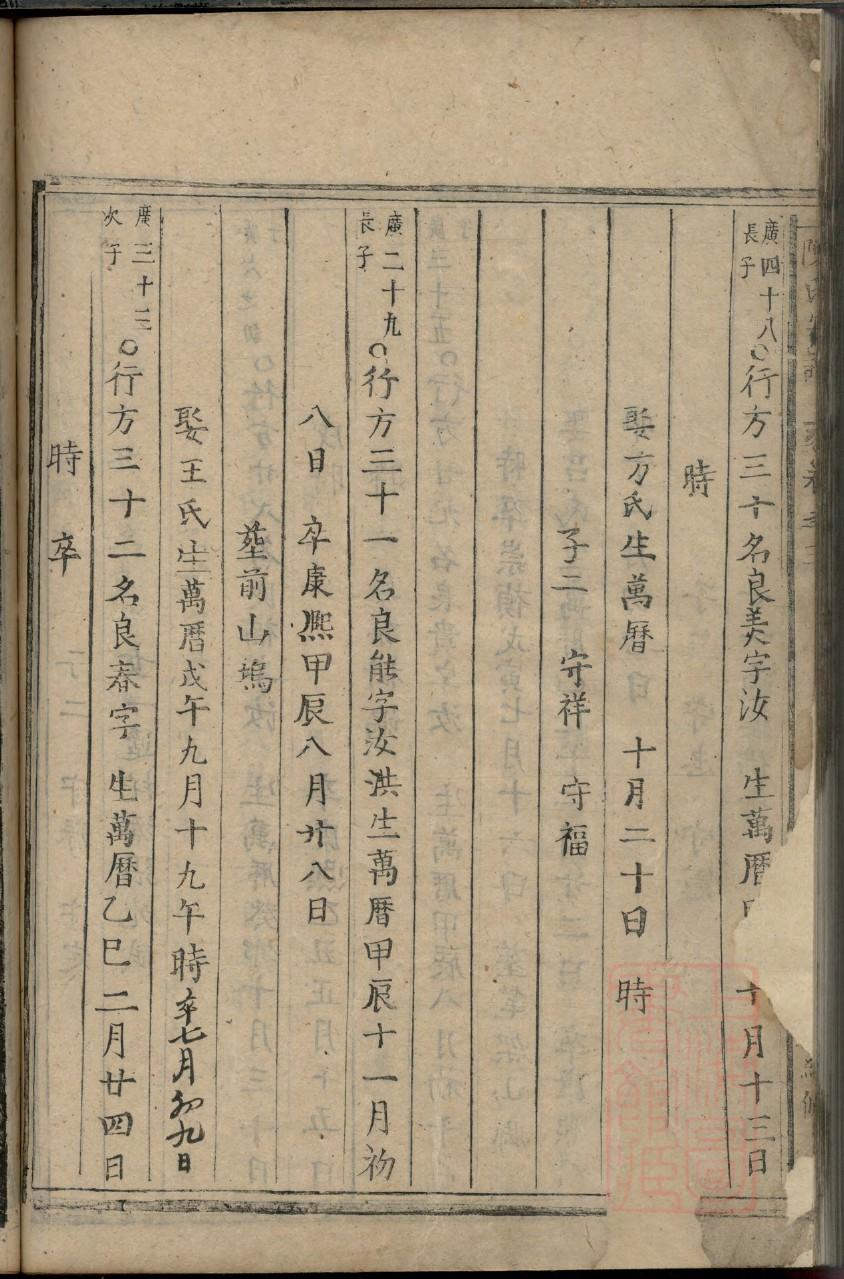 廣四十八長子○行方三十名良美字汝 生萬曆 十月十三日
時
娶方氏生萬曆 十月二十日 時
子二 守祥 守福
廣二十九長子○行方三十一名良能字汝洪生萬曆甲辰十一月初
八日 卒康熙甲辰八月廿八日
塟前山塢
娶王氏生萬曆戊午九月十九午時卒七月初九日
廣三十三次子○行方三十二名良春字 生萬曆乙巳二月廿四日
時 卒